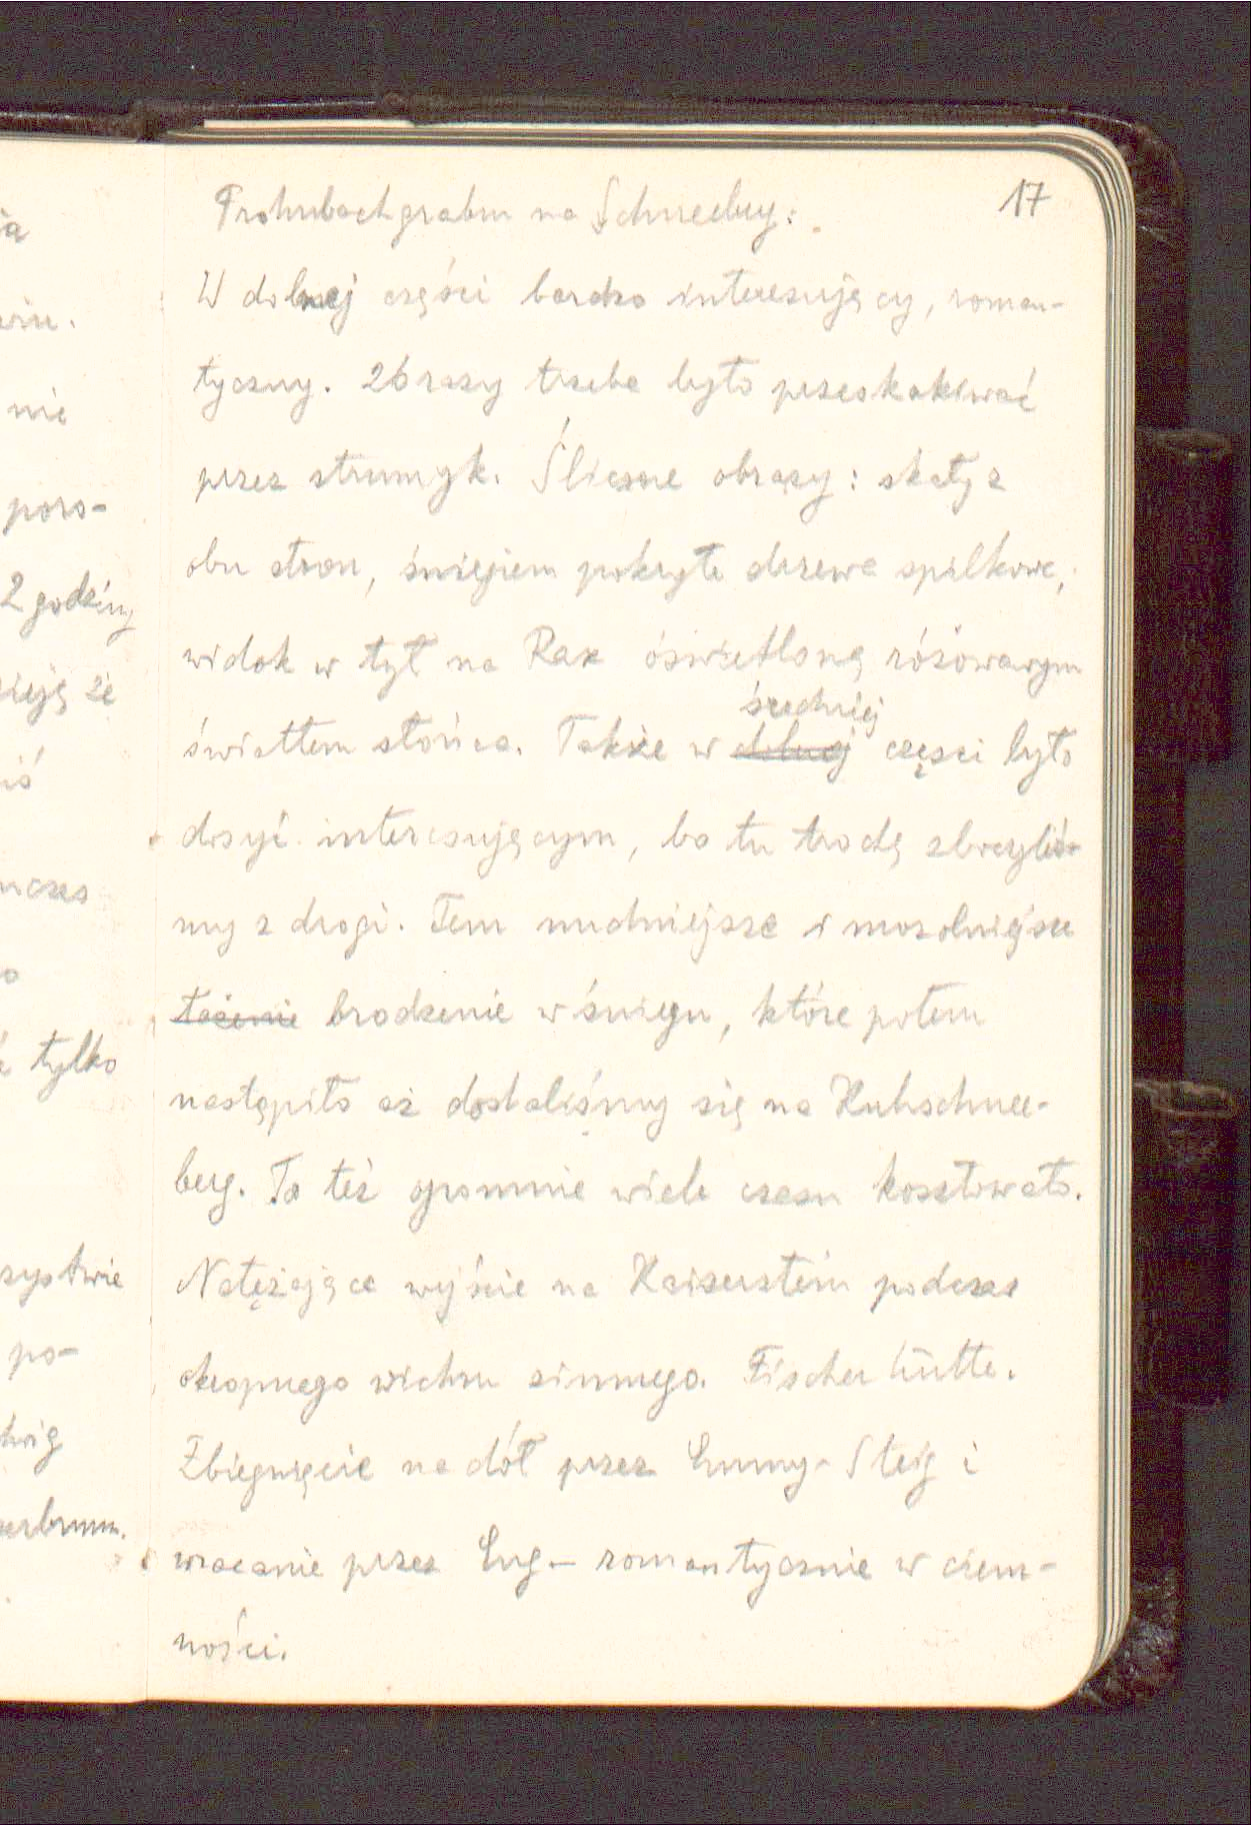 ia
17
Frohnbachgraben na Schneeberg:
W dolnej części bardzo interesujący, roman-
nie
tyczny. 26 razy trzeba było przeskakiwać
poro-
przez strumyk. Śliczne obrazy: skały z
2 godziny
obu stron, śniegiem pokryte drzewa spilkowe,
widok w tył na Rax oświetloną różowawym
średniej
światłem słońca. Także w dolnej częsci było
iś
dosyć interesującym, bo tu trochę zboczyliś-
my z drogi. Tem nudniejsze i mozolniejsze
łażenie brodzenie w śniegu, które potem
tylko
nastąpiło aż dostaliśmy się na Kuhschnee-
berg. To też ogromnie wiele czasu kosztowało.
Natężające wyjście na Kaiserstein podczas
po-
okropnego wichru zimnego. Fischerhütte.
Zbiegnięcie na dół przez Emmy-Steig i
wracanie przez Eng - romantycznie w ciem-
ności.